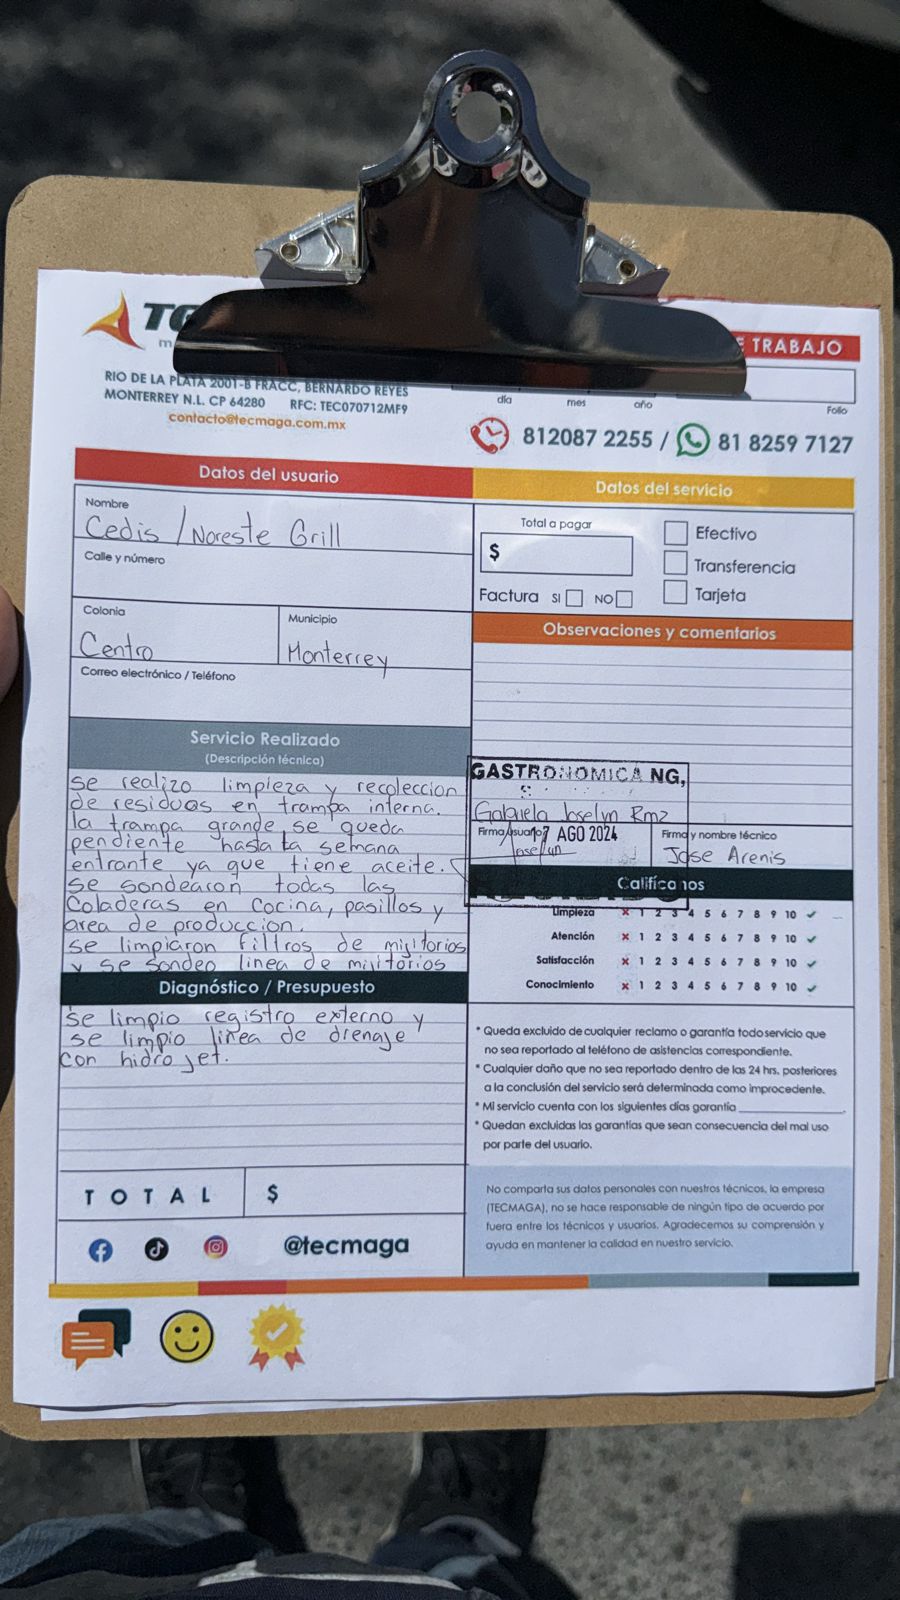 E TRABAJO
RIO DE LA PLATA 2001-B FRACC, BERNARDO REYES
MONTERREY N.L. CP 64280 RFC: TEC070712MF9
contacto@tecmaga.com.mx
día mes año Folio
812087 2255 / 81 8259 7127
Datos del usuario
Nombre
Cedis / Noreste Grill
Calle y número
Colonia
Centro
Municipio
Monterrey
Correo electrónico / Teléfono
Servicio Realizado
(Descripción técnica)
se realizo limpieza y recoleccion
de residuos en trampa interna.
la trampa grande se queda
pendiente hasta la semana
entrante ya que tiene aceite.
se sondearon todas las
Coladeras en cocina, pasillos y
area de produccion.
se limpiaron filtros de mijitorios
y se sondeo linea de mijitorios
Diagnóstico / Presupuesto
se limpio registro externo y
se limpio linea de drenaje
con hidro jet.
TOTAL $
@tecmaga
Datos del servicio
Total a pagar
$
Efectivo
Transferencia
Tarjeta
Factura SI NO
Observaciones y comentarios
GASTRONOMICA NG,
Gabriela Joselyn Rmz
Firma usuario
7 AGO 2024
Joselyn
Firma y nombre técnico
Jose Arenis
Califícanos
Limpieza x 1 2 3 4 5 6 7 8 9 10 ✓
Atención x 1 2 3 4 5 6 7 8 9 10 ✓
Satisfacción x 1 2 3 4 5 6 7 8 9 10 ✓
Conocimiento x 1 2 3 4 5 6 7 8 9 10 ✓
* Queda excluido de cualquier reclamo o garantía todo servicio que
no sea reportado al teléfono de asistencias correspondiente.
* Cualquier daño que no sea reportado dentro de las 24 hrs. posteriores
a la conclusión del servicio será determinada como improcedente.
* Mi servicio cuenta con los siguientes días garantía
* Quedan excluidas las garantías que sean consecuencia del mal uso
por parte del usuario.
No comparta sus datos personales con nuestros técnicos, la empresa
(TECMAGA), no se hace responsable de ningún tipo de acuerdo por
fuera entre los técnicos y usuarios. Agradecemos su comprensión y
ayuda en mantener la calidad en nuestro servicio.